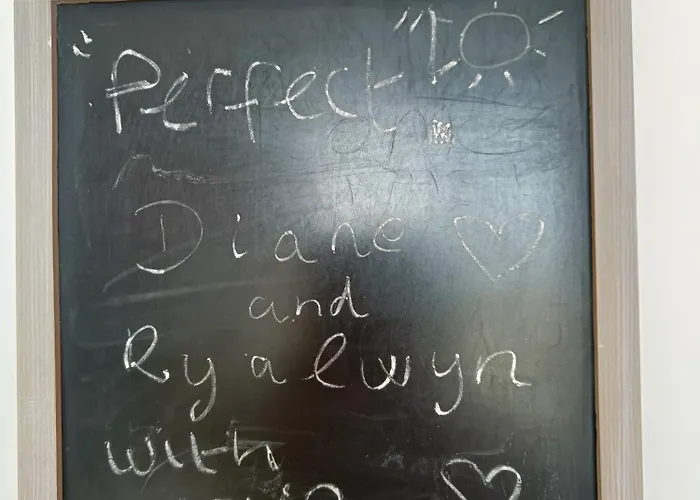 "Perfect"!
Diane
and
Ryalwyn
with